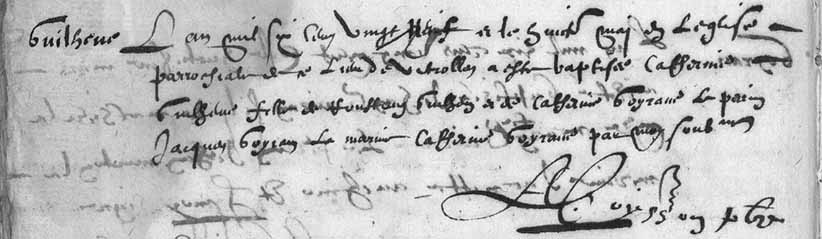 Guilhene L'an mil six cens vingt neuf et le huict may en l'eglise
parrochialle de ce lieu de Vitrolles a esté baptisée Catherine
Guilhene fille de Guilhen et de Catherine Boyrane le parin
Jacques Boyran la marine Catherine Boyrane par moy soubz
Moysson pbre